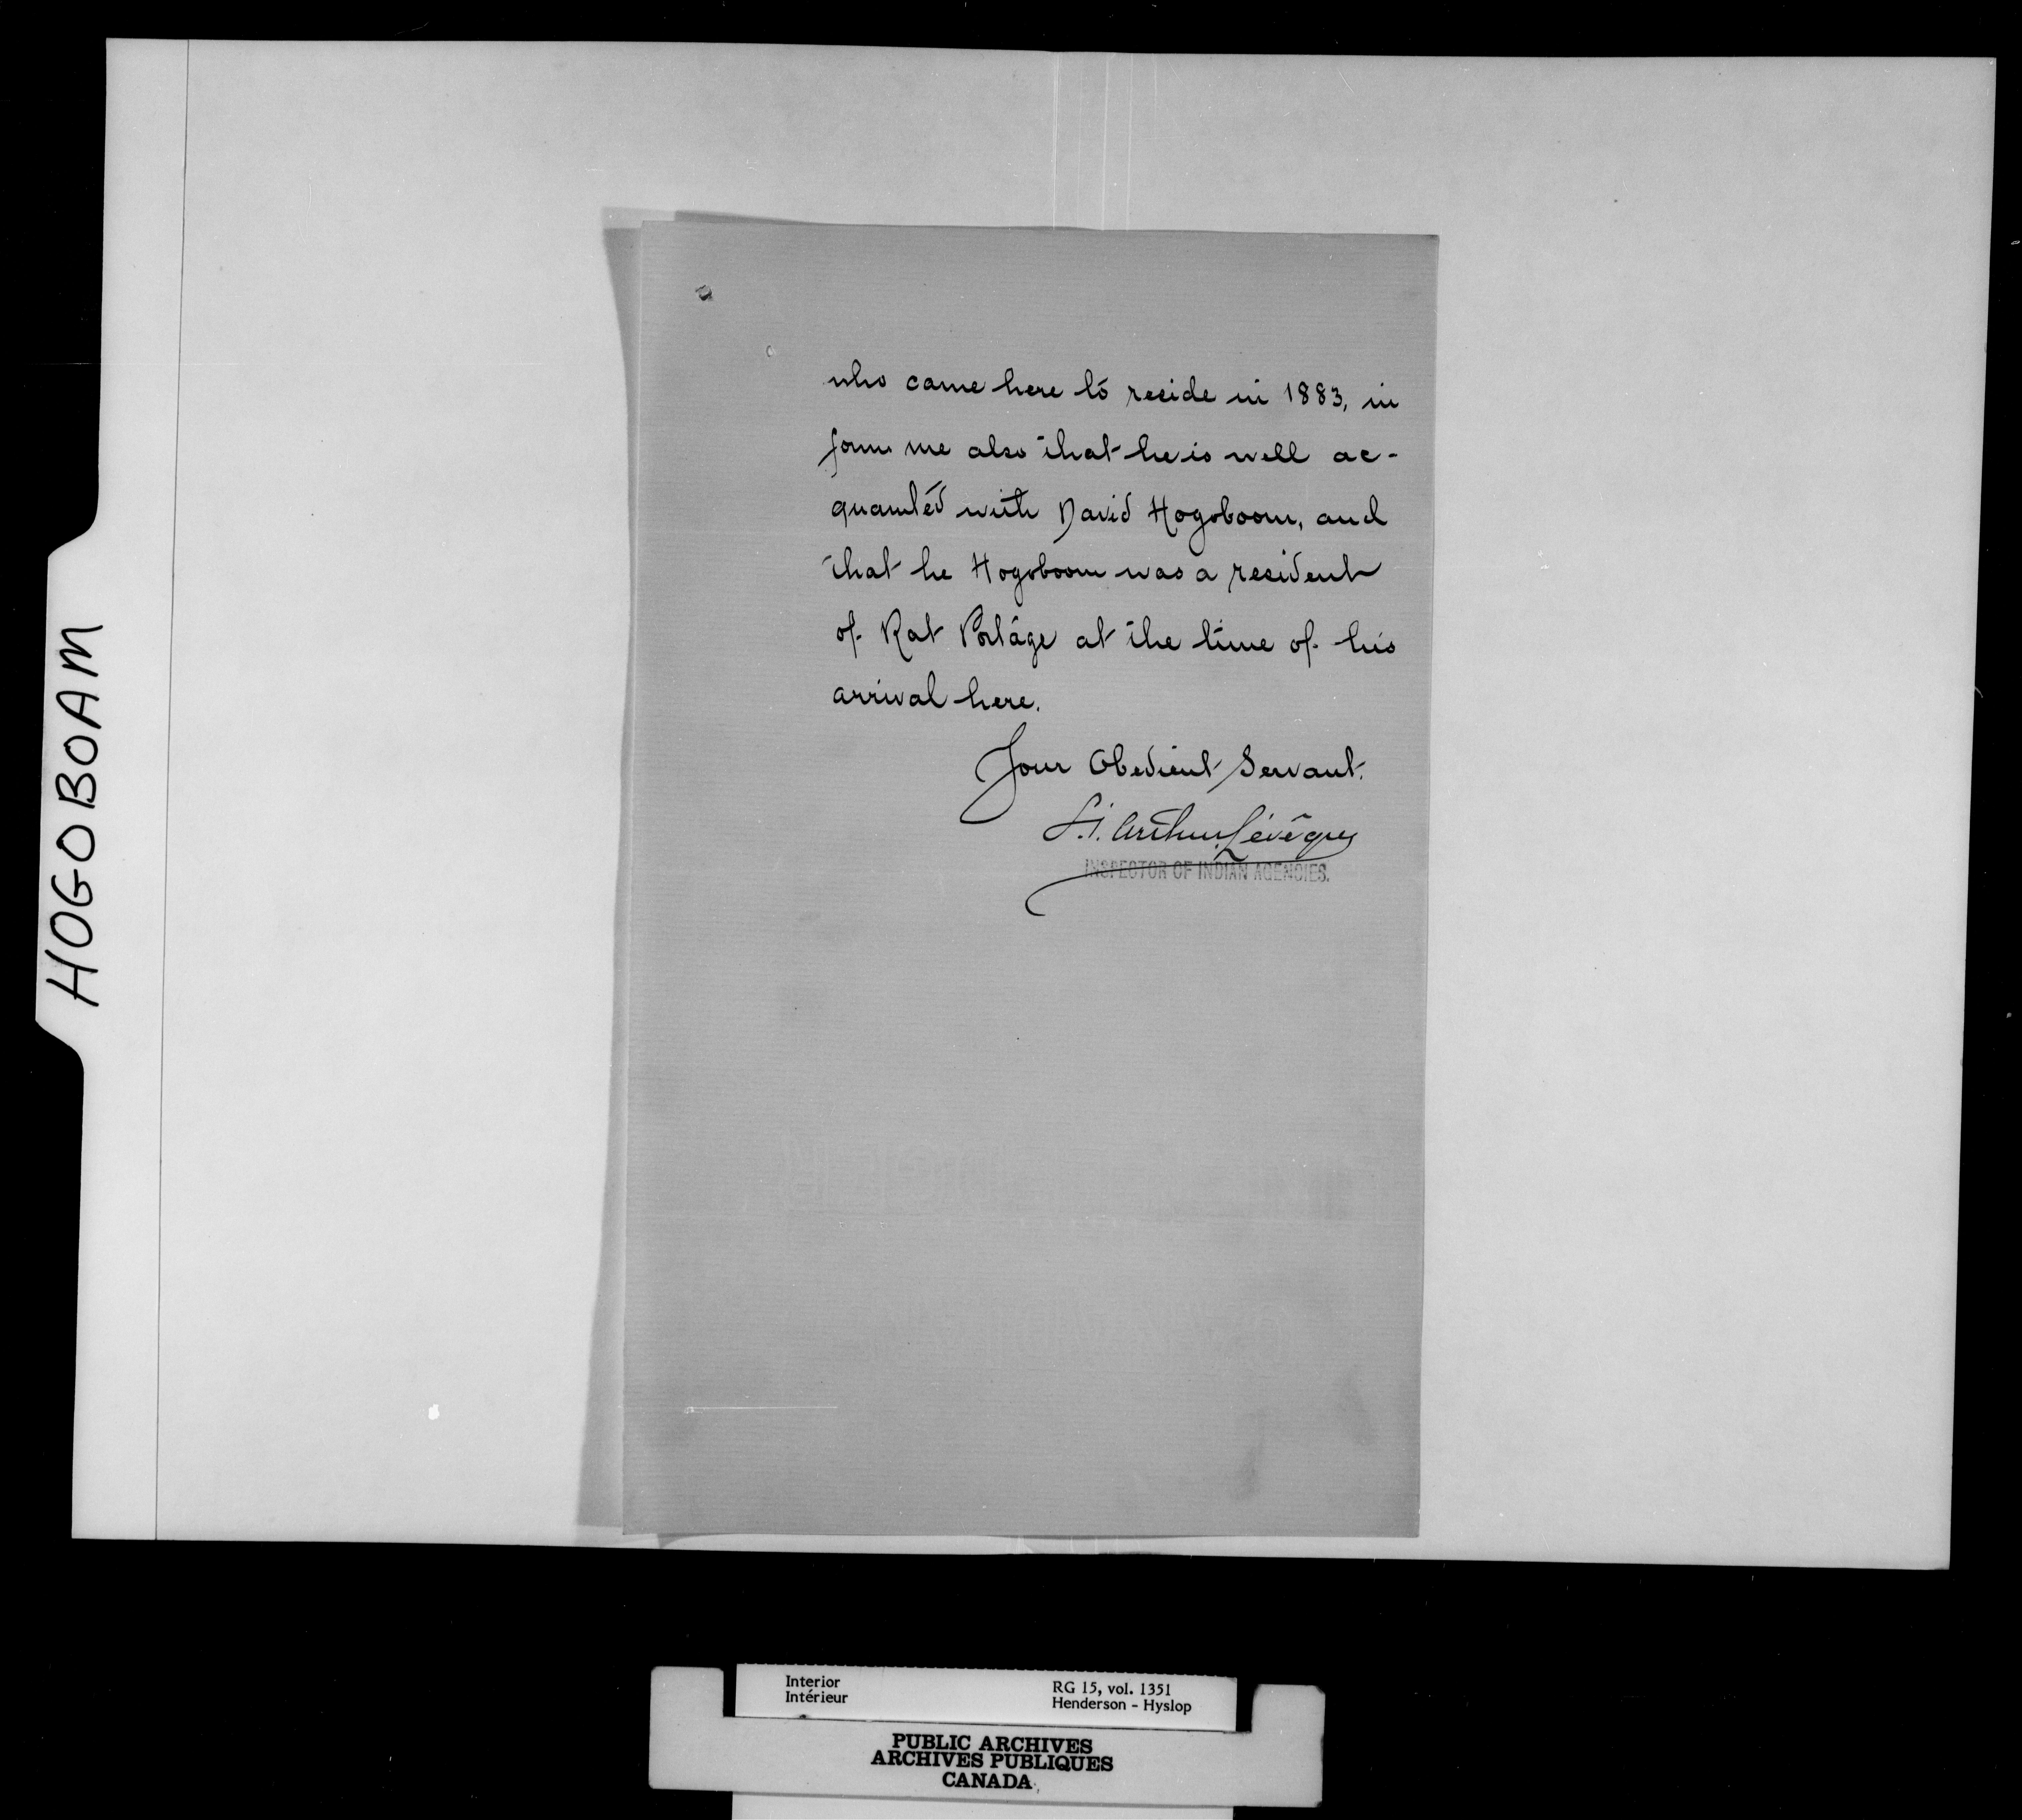 HOGOBOAM
who came here to reside in 1883, in
form me also that he is well ac-
quainted with David Hogoboom, and
that he Hogoboom was a resident
of Rat Portage at the time of his
arrival here.
Your Obedient Servant.
Arthur Lévêque
INSPECTOR OF INDIAN AGENCIES.
Interior
Intérieur
RG 15, vol. 1351
Henderson - Hyslop
PUBLIC ARCHIVES
ARCHIVES PUBLIQUES
CANADA